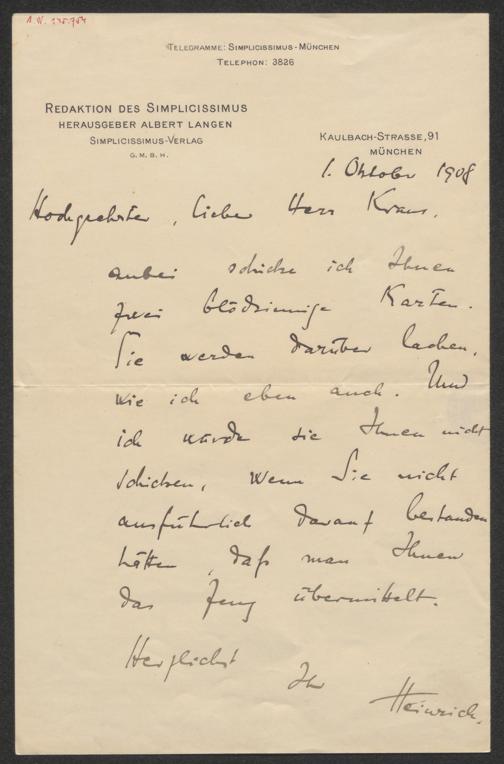 TELEGRAMME: SIMPLICISSIMUS-MÜNCHEN
TELEPHON: 3826
REDAKTION DES SIMPLICISSIMUS
HERAUSGEBER ALBERT LANGEN
SIMPLICISSIMUS-VERLAG
G. M. B. H.
KAULBACH-STRASSE, 91
MÜNCHEN
1. Oktober 1908
Hochgeehrter, lieber Herr Kraus,
anbei schicke ich Ihnen
zwei blödsinnige Karten.
Sie werden darüber lachen,
wie ich eben auch. Und
ich würde sie Ihnen nicht
schicken, wenn Sie nicht
ausführlich darauf bestanden
hätten, daß man Ihnen
das Zeug übermittelt.
Herzlichst
Ihr
Heinrich.